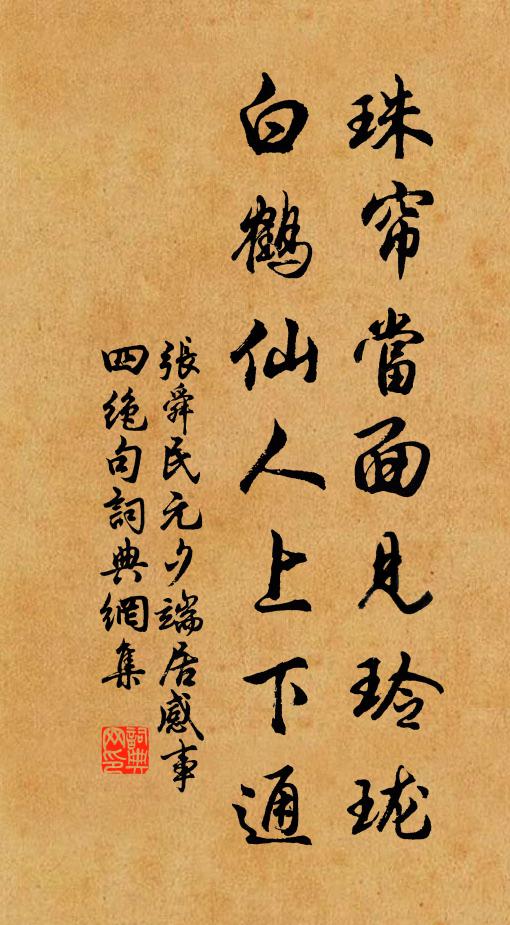 珠帘當面見玲珑
白鶴仙人上下通
張舜民元夕端居感事
四絶句詞典網集
詞典
网印